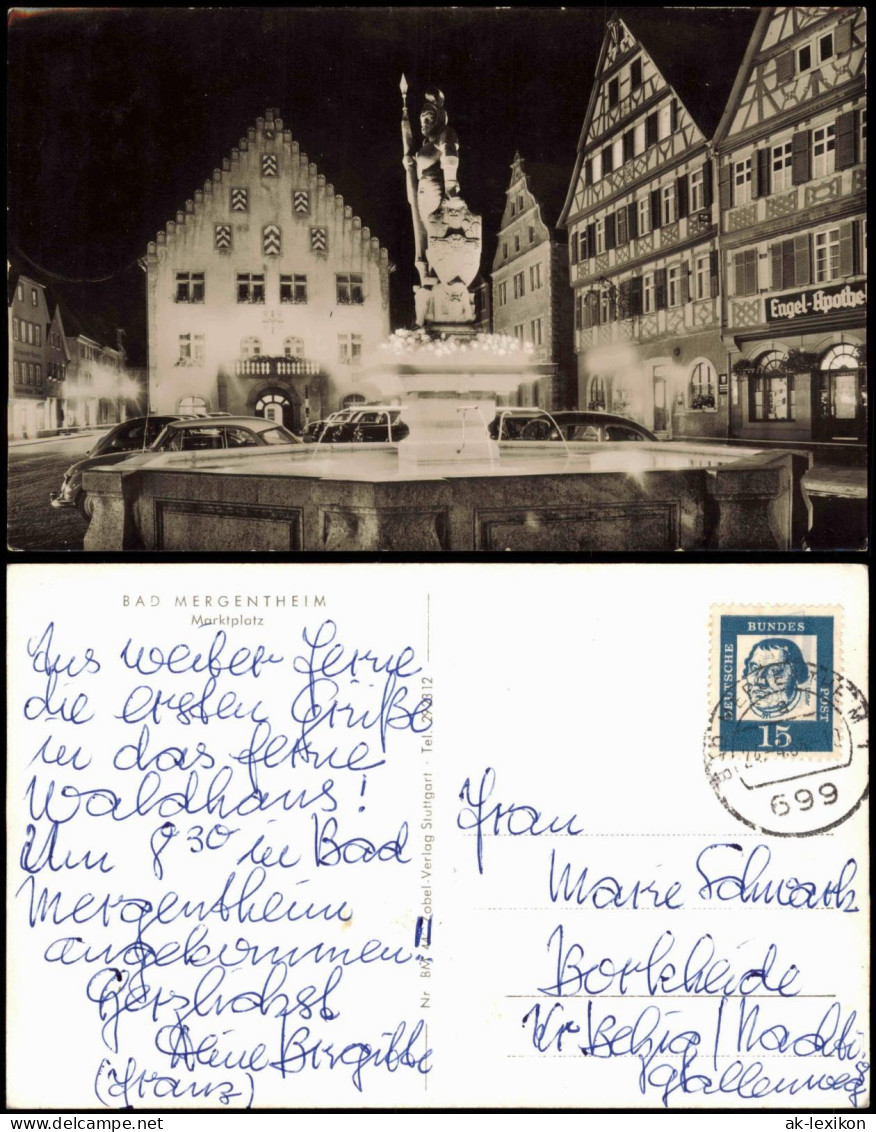 Engel-Apothe
BAD MERGENTHEIM
Marktplatz
Aus weiter Ferne
die ersten Grüße
in das ferne
Waldhaus!
Um 8 30 in Bad
Mergentheim
angekommen!
Herzlichst
Deine Birgitte
(Franz)
Zobel-Verlag Stuttgart · Tel.
DEUTSCHE BUNDES POST
15
699
Frau
Marie Schwark
Borkheide
Kr Belzig/
ak-lexikon